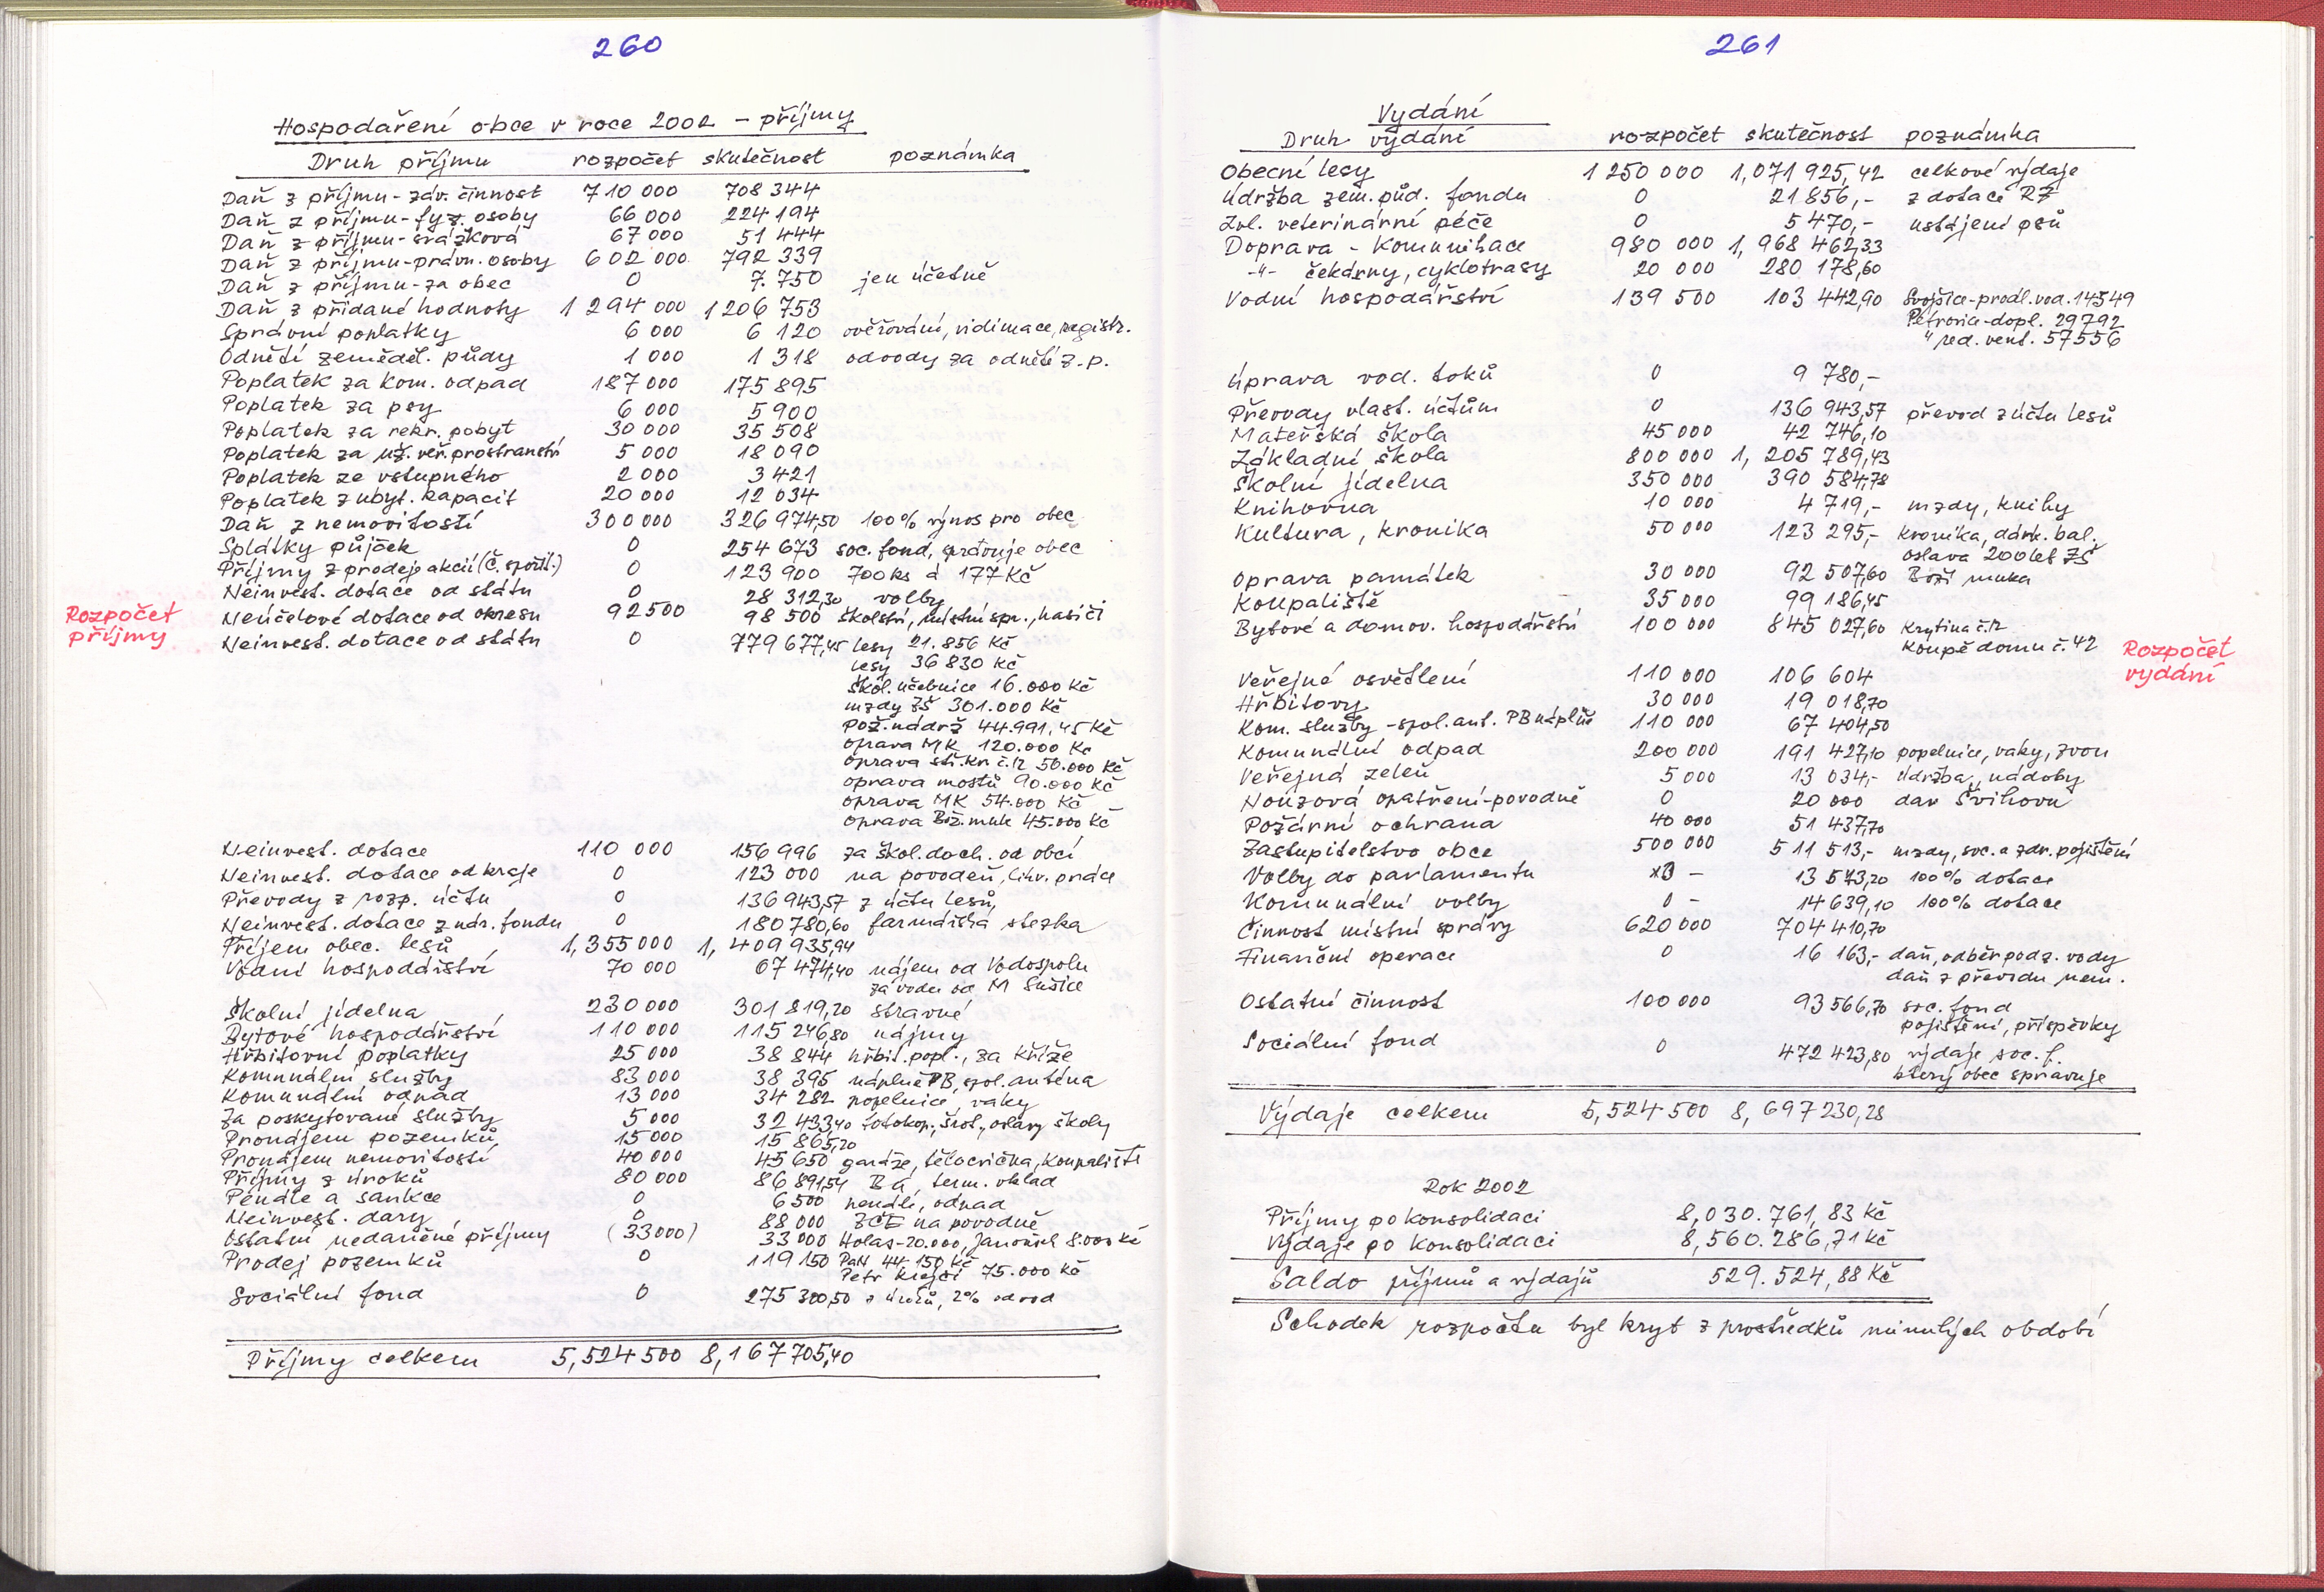 260
Hospodaření obce v roce 2002 - příjmy
Druh příjmu rozpočet skutečnost poznámka
Daň z příjmu-záv. činnost 710 000 708 344
Daň z příjmu-fyz. osoby 66 000 224 194
Daň z příjmu-srážková 67 000 51 444
Daň z příjmu-právn. osoby 602 000 792 339
Daň z příjmu-za obec 0 7.750 jen účetně
Daň z přidané hodnoty 1 294 000 1 206 753
Správní poplatky 6 000 6 120 ověřování, vidimace, registr.
Odnětí zeměděl. půdy 1 000 1 318 odvody za odnětí z.p.
Poplatek za kom. odpad 187 000 175 895
Poplatek za psy 6 000 5 900
Poplatek za rekr. pobyt 30 000 35 508
Poplatek za už. veř. prostranství 5 000 18 090
Poplatek ze vstupného 2 000 3 421
Poplatek z ubyt. kapacit 20 000 12 034
Daň z nemovitostí 300 000 326 974,50 100% výnos pro obec
Splátky půjček 0 254 673 soc. fond, spravuje obec
Příjmy z prodeje akcií (Č. spořit.) 0 123 900 700 ks á 177 Kč
Neinvest. dotace od státu 0 28 312,30 volby
Rozpočet
příjmy
Neúčelové dotace od okresu 92 500 98 500 školství, místní spr., hasiči
Neinvest. dotace od státu 0 779 677,45 lesy 21.856 Kč
lesy 36 830 Kč
škol. učebnice 16.000 Kč
mzdy ZŠ 301.000 Kč
pož. nádrž 44.991,45 Kč
oprava MK 120.000 Kč
oprava stř. kr. č.12 50.000 Kč
oprava mostů 90.000 Kč
oprava MK 54.000 Kč
oprava Bož. muk 45.000 Kč
Neinvest. dotace 110 000 156 996 za škol. doch. od obcí
Neinvest. dotace od kraje 0 123 000 na povodeň, likv. práce
Převody z rozp. účtu 0 136 943,57 z účtu lesů
Neinvest. dotace z nár. fondu 0 180 780,60 farmářská stezka
Příjem obec. lesů 1,355 000 1, 409 935,94
Vodní hospodářství 70 000 67 474,40 nájem od Vodospolu
za vodu od M Sušice
Školní jídelna 230 000 301 819,20 stravné
Bytové hospodářství 110 000 115 246,80 nájmy
Hřbitovní poplatky 25 000 38 844 hřbit. popl., za kříže
Komunální služby 83 000 38 395 náplně PB, spol. anténa
Komunální odpad 13 000 34 282 popelnice vaky
Za poskytované služby 5 000 32 433,40 fotokop., šrot., oslavy školy
Pronájem pozemků 15 000 15 865,20
Pronájem nemovitostí 40 000 45 650 garáže, tělocvična, koupaliště
Příjmy z úroků 80 000 86 891,54 BÚ, term. vklad
Penále a sankce 0 6 500 penále, odpad
Neinvest. dary 0 88 000 ZČE na povodně
Ostatní nedaněné příjmy (33 000) 33 000 Holas-20.000, Janoušek 8.000 Kč
Prodej pozemků 0 119 150 PaN 44 150 Kč
Petr Krejčí 75.000 Kč
Sociální fond 0 275 300,50 z úroků, 2% odvod
Příjmy celkem 5,524 500 8,167 705,40
261
Vydání
Druh vydání rozpočet skutečnost poznámka
Obecní lesy 1 250 000 1,071 925,42 celkové výdaje
Údržba zem. půd. fondu 0 21 856,- z dotace RŽ
Zvl. veterinární péče 0 5 470,- ustájení psů
Doprava - Komunikace 980 000 1, 968 462,33
-"- čekárny, cyklotrasy 20 000 280 178,60
Vodní hospodářství 139 500 103 442,90 Svojšice-prodl. vod. 14549
Petrovice-dopl. 29792
" red. vent. 57556
Úprava vod. toků 0 9 780,-
Převody vlast. účtům 0 136 943,57 převod z účtu lesů
Mateřská škola 45 000 42 746,10
Základní škola 800 000 1, 205 789,43
Školní jídelna 350 000 390 584,78
Knihovna 10 000 4 719,- mzdy, knihy
Kultura, kronika 50 000 123 295,- kronika, dárk. bal.,
oslava 200 let ZŠ
Oprava památek 30 000 92 507,60 Boží muka
Koupaliště 35 000 99 186,45
Bytové a domov. hospodářství 100 000 845 027,60 Krytina č.12
koupě domu č. 42
Rozpočet
vydání
Veřejné osvětlení 110 000 106 604
Hřbitovy 30 000 19 018,70
Kom. služby - spol. ant. PB náplně 110 000 67 404,50
Komunální odpad 200 000 191 427,10 popelnice, vaky, zvon
Veřejná zeleň 5 000 13 034,- údržba, nádoby
Nouzová opatření-povodně 0 20 000 dar Švihovu
Požární ochrana 40 000 51 437,70
Zastupitelstvo obce 500 000 511 513,- mzdy, soc. a zdr. pojištění
Volby do parlamentu - 13 573,20 100% dotace
Komunální volby 0 - 14 639,10 100% dotace
Činnost místní správy 620 000 704 410,70
Finanční operace 0 16 163,- daň, odběr podz. vody
daň z převodu nem.
Ostatní činnost 100 000 93 566,70 soc. fond
pojištění, příspěvky
Sociální fond 0 472 423,80 výdaje soc. f.
který obec spravuje
Výdaje celkem 5,524 500 8, 697 230,28
Rok 2002
Příjmy po konsolidaci 8,030.761,83 Kč
Výdaje po konsolidaci 8,560.286,71 Kč
Saldo příjmů a výdajů 529.524,88 Kč
Schodek rozpočtu byl kryt z prostředků minulých období